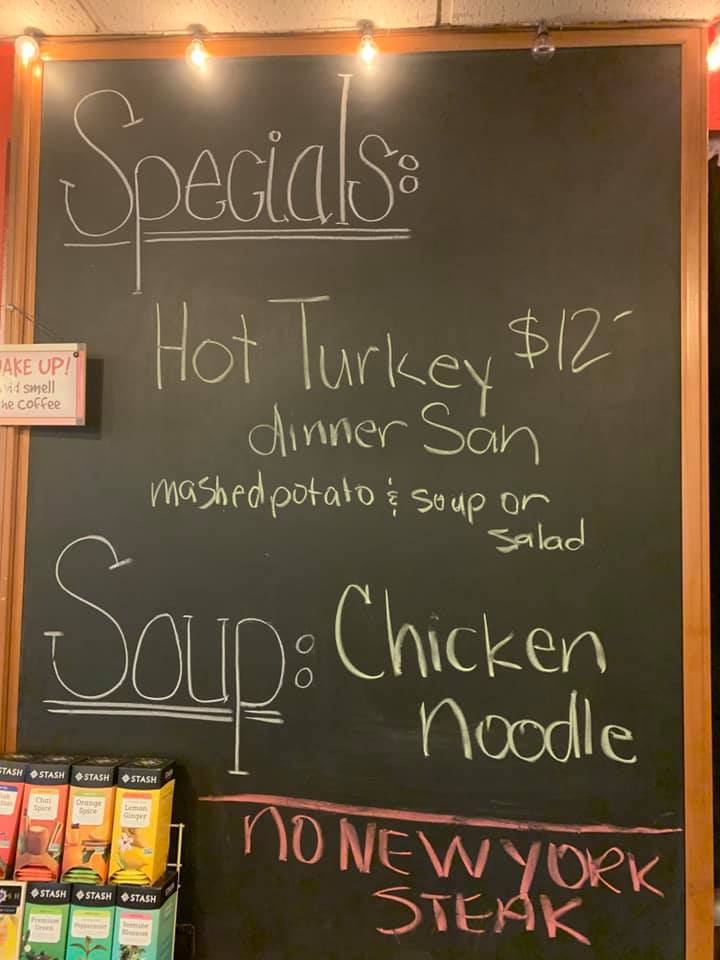 Specials:
Hot Turkey $12-
dinner San
mashed potato & soup or
salad
AKE UP!
smell
he coffee
Soup: Chicken
noodle
no NEW YORK
STEAK
STASH STASH STASH
Chai
Spice
Orange
Spice
Lemon
Ginger
STASH STASH STASH
Premium
Green
Peppermint
Jasmine
Blossom